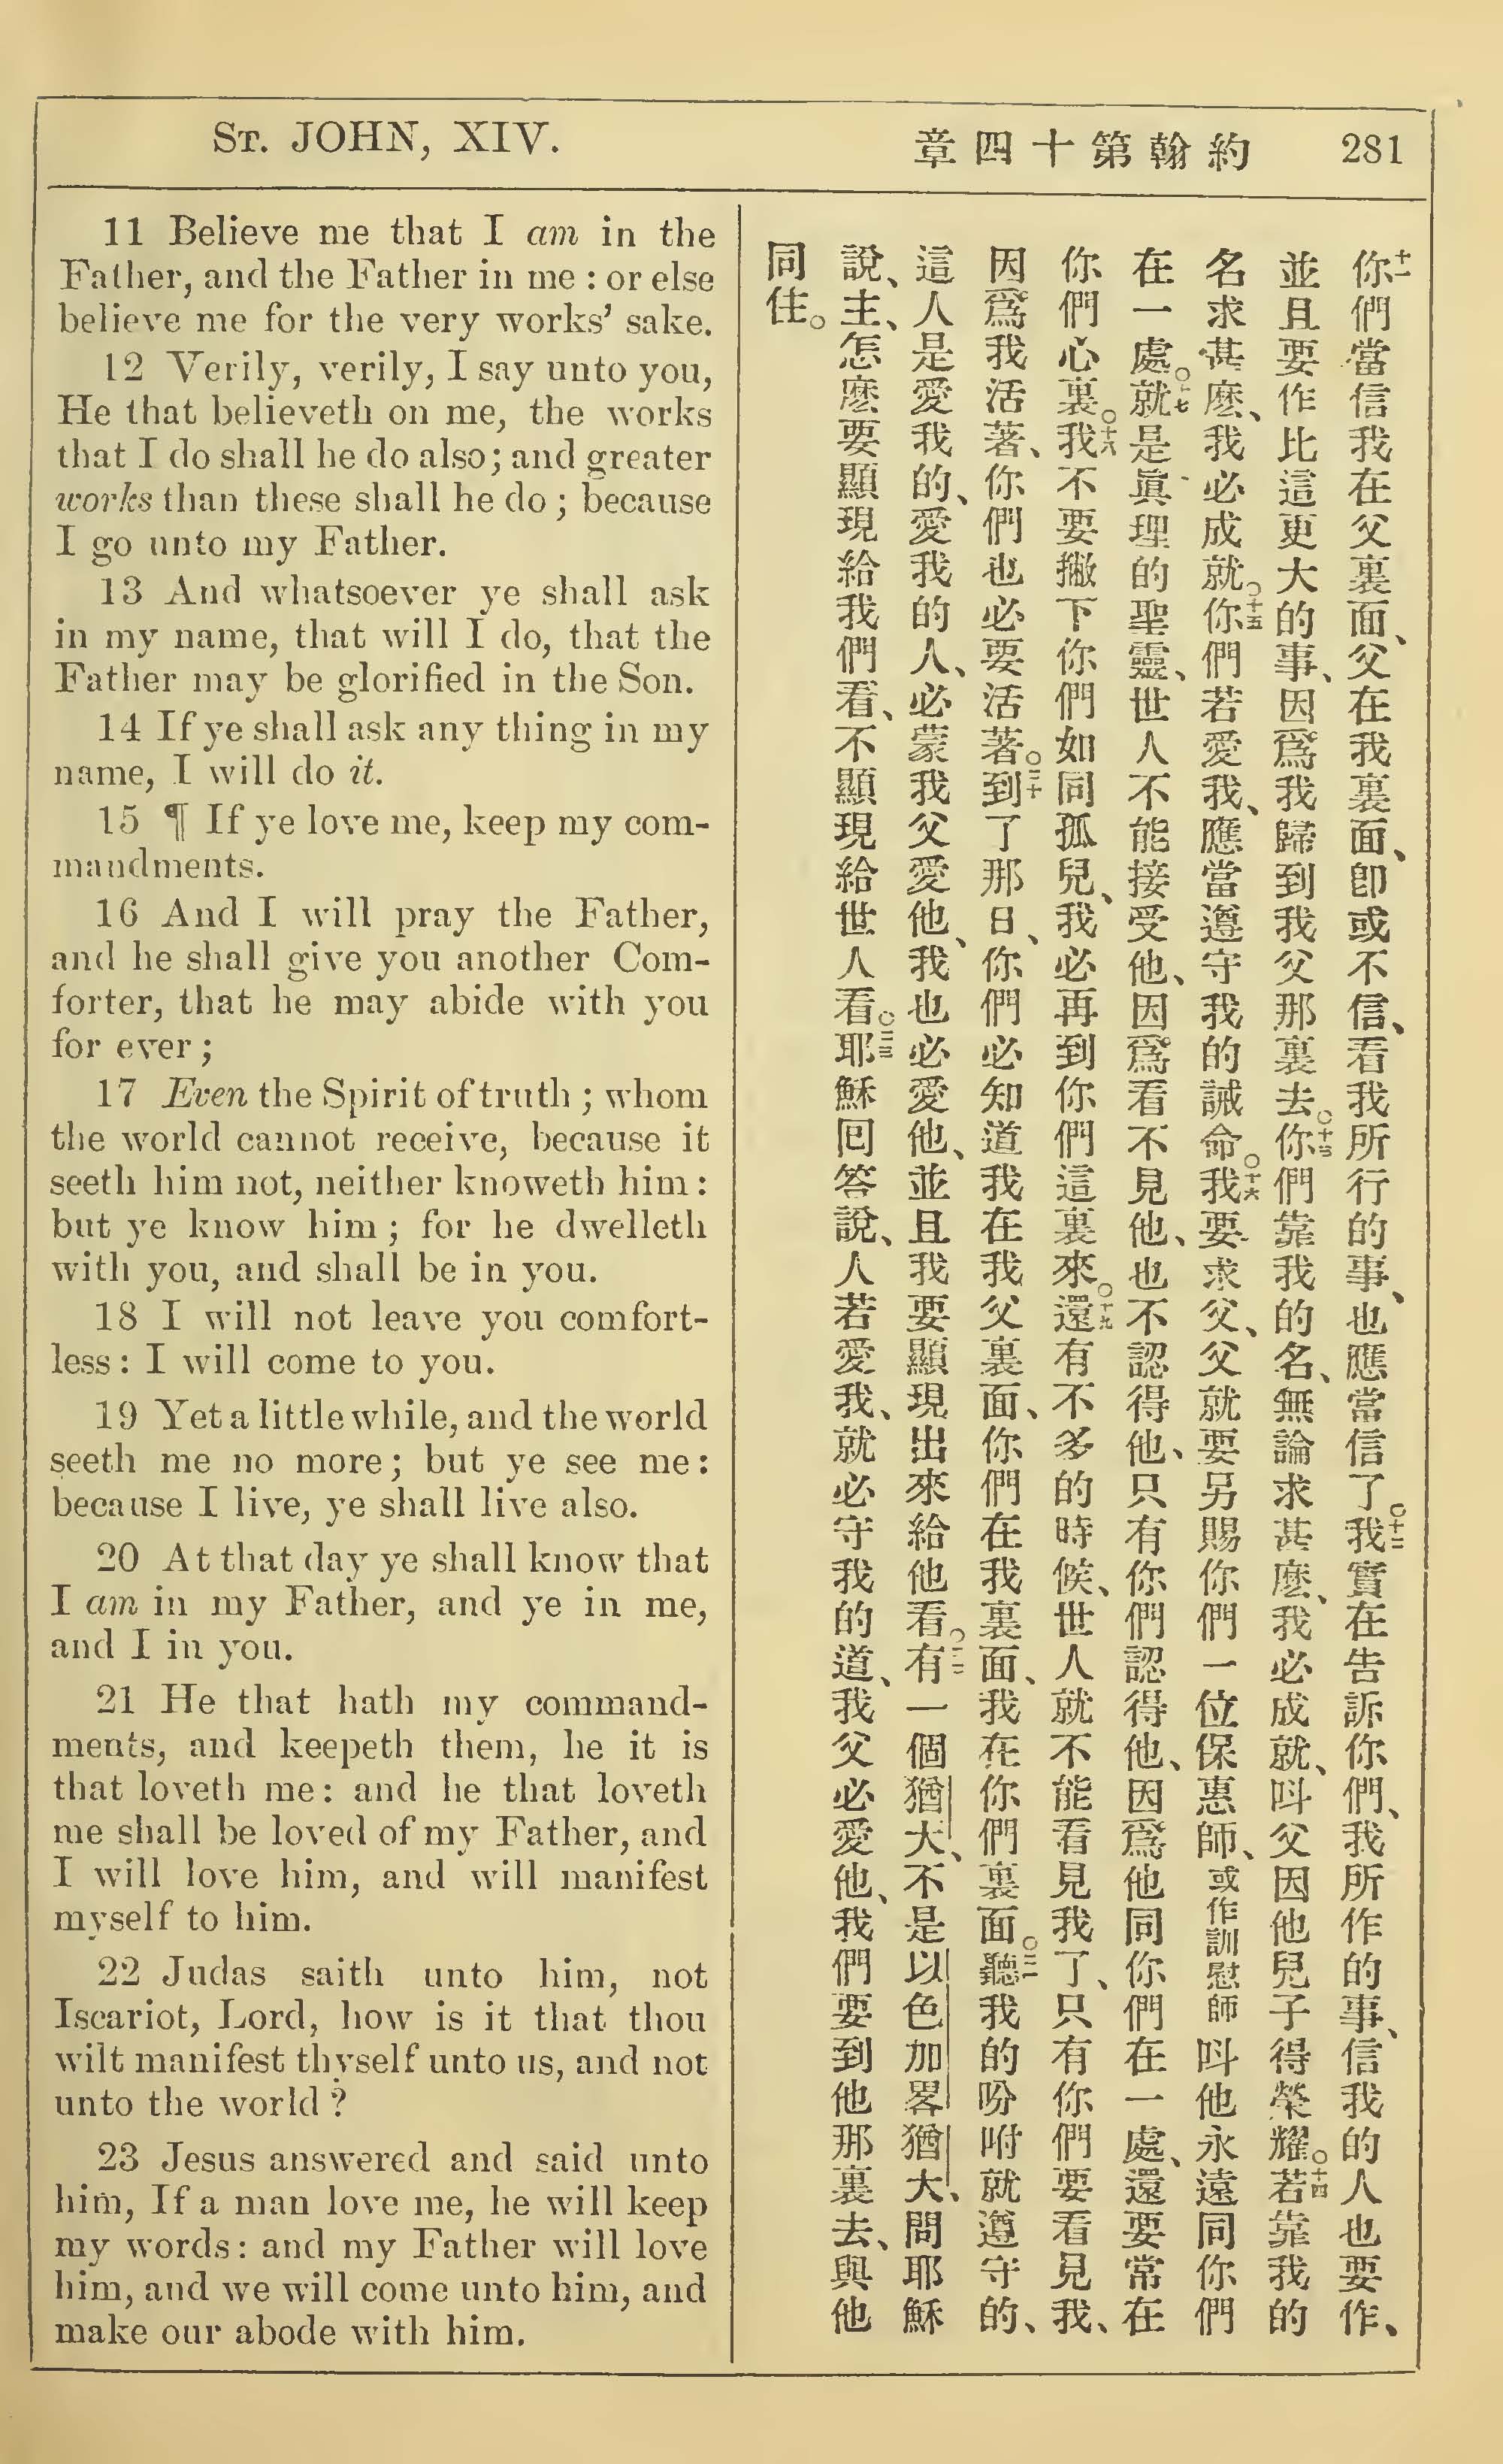 ST. JOHN, XIV.
章四十第翰約
281
11 Believe me that I am in the
Father, and the Father in me : or else
believe me for the very works' sake.
12 Verily, verily, I say unto you,
He that believeth on me, the works
that I do shall he do also; and greater
works than these shall he do ; because
I go unto my Father.
13 And whatsoever ye shall ask
in my name, that will I do, that the
Father may be glorified in the Son.
14 If ye shall ask any thing in my
name, I will do it.
15 ¶ If ye love me, keep my com-
mandments.
16 And I will pray the Father,
and he shall give you another Com-
forter, that he may abide with you
for ever ;
17 Even the Spirit of truth ; whom
the world cannot receive, because it
seeth him not, neither knoweth him:
but ye know him ; for he dwelleth
with you, and shall be in you.
18 I will not leave you comfort-
less: I will come to you.
19 Yet a little while, and the world
seeth me no more; but ye see me:
because I live, ye shall live also.
20 At that day ye shall know that
I am in my Father, and ye in me,
and I in you.
21 He that hath my command-
ments, and keepeth them, he it is
that loveth me: and he that loveth
me shall be loved of my Father, and
I will love him, and will manifest
myself to him.
22 Judas saith unto him, not
Iscariot, Lord, how is it that thou
wilt manifest thyself unto us, and not
unto the world ?
23 Jesus answered and said unto
him, If a man love me, he will keep
my words: and my Father will love
him, and we will come unto him, and
make our abode with him.
十一你們當信我在父裏面、父在我裏面、卽或不信、看我所行的事、也應當信了。十二我實在告訴你們、我所作的事、信我的人也要作、
並且要作比這更大的事、因爲我歸到我父那裏去。十三你們靠我的名、無論求甚麽、我必成就、呌父因他兒子得榮耀。十四若靠我的
名求甚麽、我必成就。十五你們若愛我、應當遵守我的誡命。十六我要求父、父就要另賜你們一位保惠師、或作訓慰師呌他永遠同你們
在一處。十七就是眞理的聖靈、世人不能接受他、因爲看不見他、也不認得他、只有你們認得他、因爲他同你們在一處、還要常在
你們心裏。十八我不要撇下你們如同孤兒、我必再到你們這裏來。十九還有不多的時候、世人就不能看見我了、只有你們要看見我、
因爲我活著、你們也必要活著。二十到了那日、你們必知道我在我父裏面、你們在我裏面、我在你們裏面。二一聽我的吩咐就遵守的、
這人是愛我的、愛我的人、必蒙我父愛他、我也必愛他、並且我要顯現出來給他看。二二有一個猶大、不是以色加畧猶大、問耶穌
說、主、怎麽要顯現給我們看、不顯現給世人看。二三耶穌囘答說、人若愛我、就必守我的道、我父必愛他、我們要到他那裏去、與他
同住。